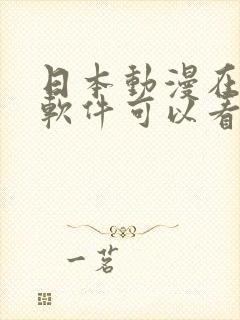 日本動漫在
軟件可以看
一茗